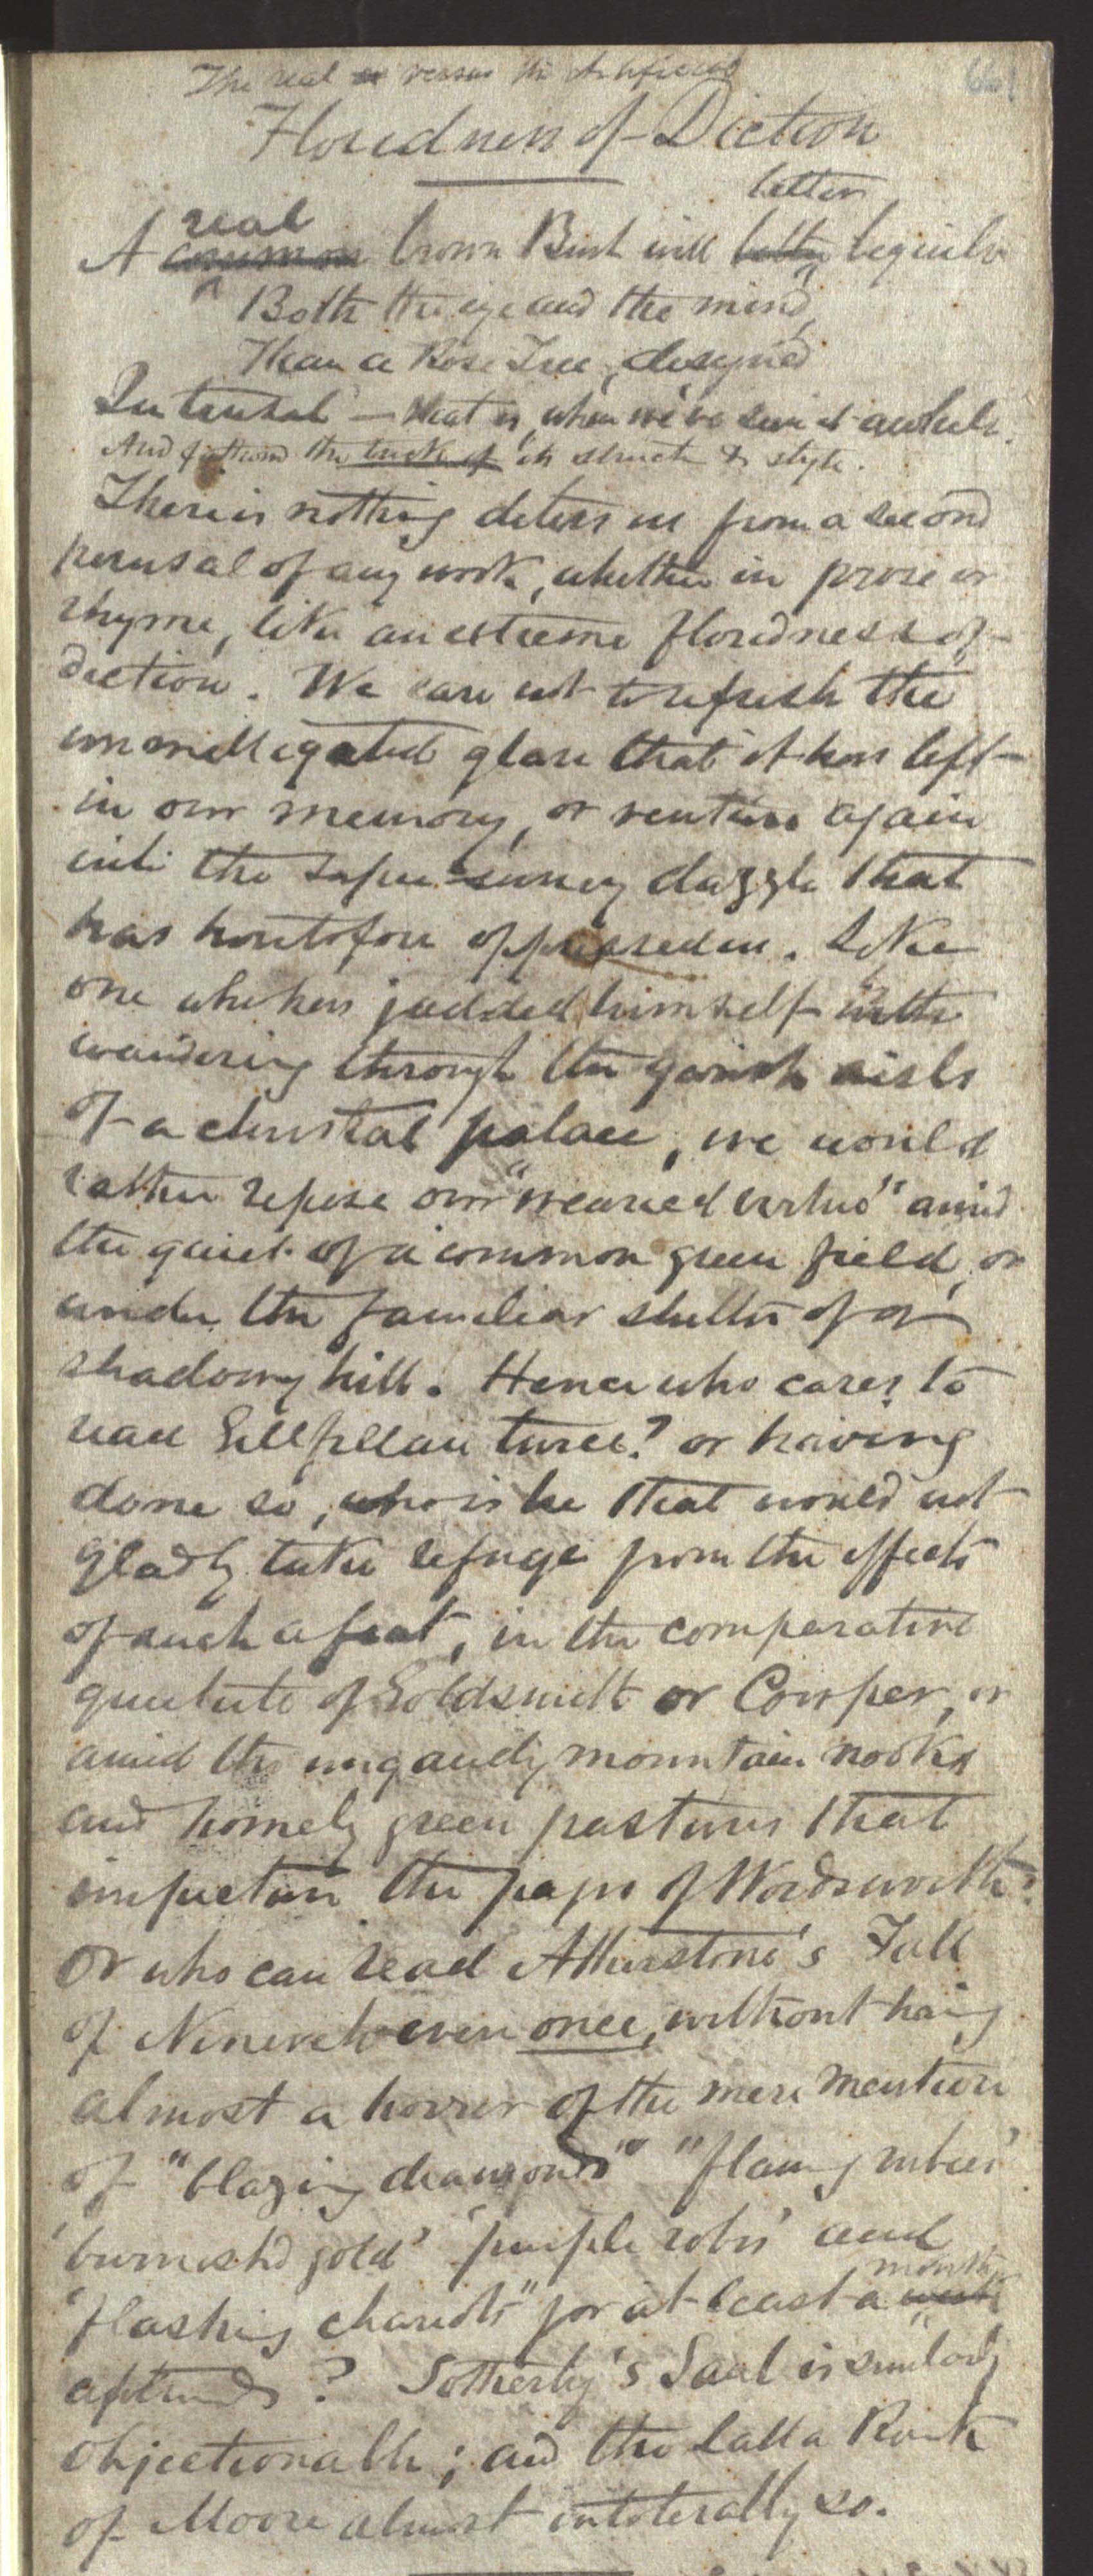 The real versus the Artificial
661
Floridness of Diction
better
real
A common brown Bush will betty beguile
Both the eye and the mind,
Than a Rose Tree, designed
In tinsel — that is, when we've seen it awhile.
And fathom'd the trick of its structe & style.
There is nothing deters us from a second
perusal of any work, whether in prose or
rhyme, like an extreme floridness of
diction. We care not to refresh the
unmitigated glare that it has left
in our memory, or venture again
into the super-sunny dazzle that
has heretofore oppressed us. Like
one who has jadded himself with
wandering through the garish aisls
of a christal palace, we would
rather repose our "wearied virtue" amid
the quiet of a common green field, or
under the familiar shelter of a
shadowy hill. Hence who cares to
read Gillfillan twice? or having
done so, who is he that would not
gladly take refuge from the effects
of such a feat, in the comparative
quietude of Goldsmith or Cowper, or
amid the ungaudy mountain nooks
and homely green pastures that
the page of Wordsworth?
Or who can read Atherstone's Fall
of Nineveh even once, without having
almost a horror of the mere mention
of "blazing diamonds" "flaming rubies"
'burnish'd gold' 'purple robes' and
"flashing chariots" for at least a week
month
afterwards? Sotherby's Saul is similarly
objectionable; and the Lalla Rookh
of Moore almost intolerally so.